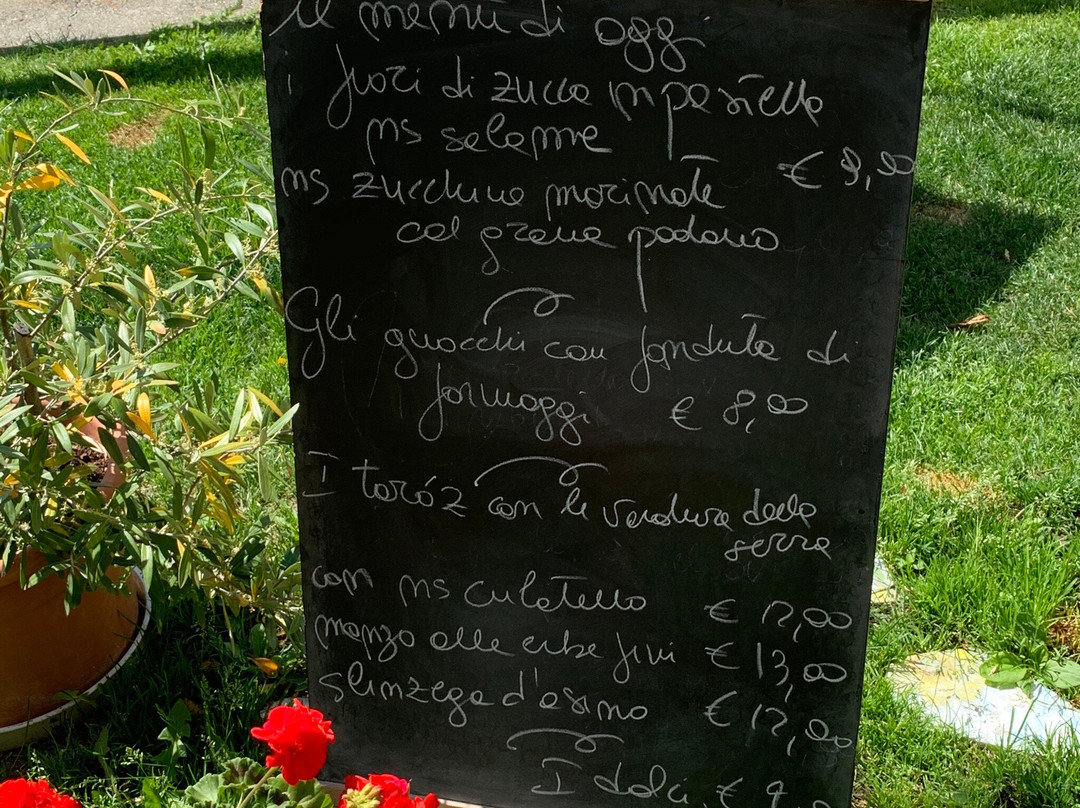 Il menù di oggi
i fiori di zucca in pastella
ns salame
€ 9,00
ns zucchine marinate
col grana padano
Gli gnocchi con fonduta di
formaggi € 8,00
I taróz con le verdure della
serra
con ns culatello € 12,00
manzo alle erbe fini € 13,00
slinzega d'asino € 12,00
I dolci €